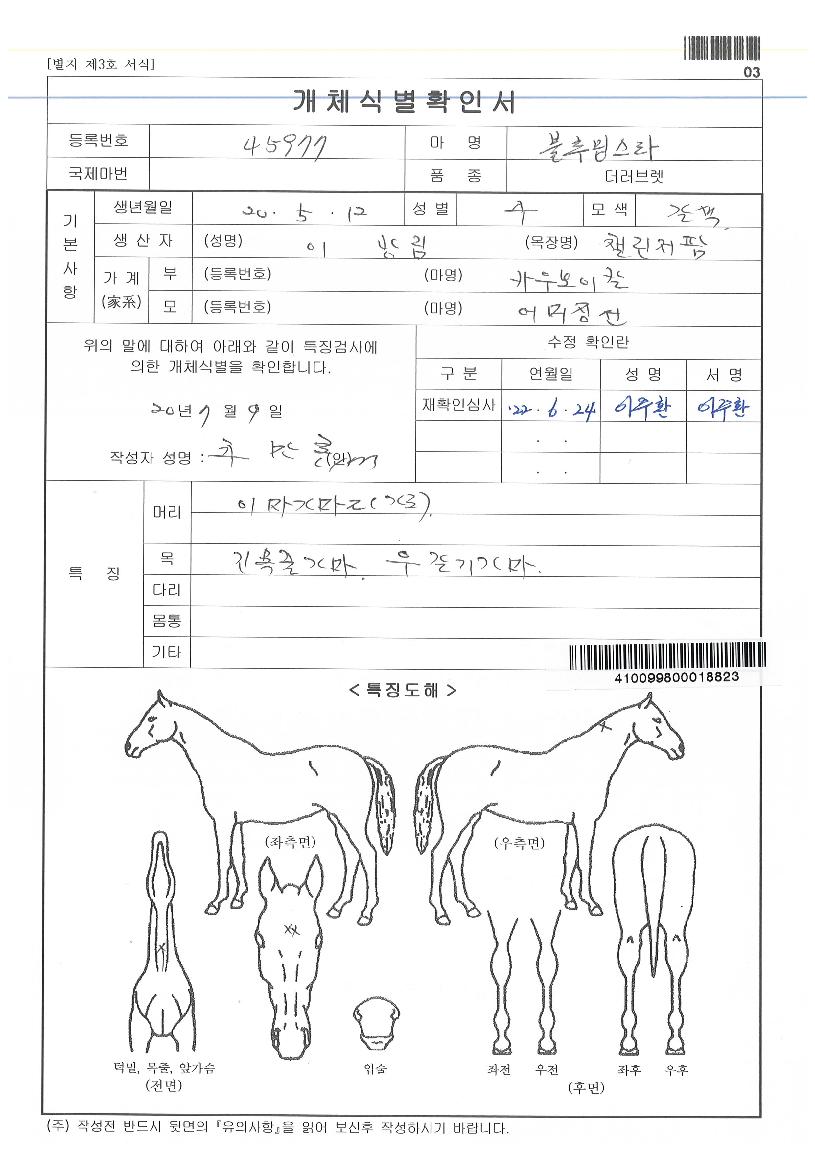 [별지 제3호 서식]
03
개체식별확인서
등록번호 45977 마 명 블루밍스타
국제마번 품 종 더러브렛
기본사항
생년월일 20. 5. 12 성 별 수 모 색 갈색
생 산 자 (성명) 이 방림 (목장명) 챌린저팜
가 계 (家系) 부 (등록번호) (마명) 카우보이칼
모 (등록번호) (마명)
위의 말에 대하여 아래와 같이 특징검사에
의한 개체식별을 확인합니다.
20년 7월 9일
작성자 성명 : (인)
수정 확인란
구 분 연월일 성 명 서 명
재확인심사 '22. 6. 24 이주환 이주환
. .
. .
특 징
머리
목
다리
몸통
기타
410099800018823
< 특징도해 >
(좌측면) (우측면)
턱밑, 목줄, 앞가슴
(전면)
입술
좌전 우전 좌후 우후
(후면)
(주) 작성전 반드시 뒷면의 『유의사항』을 읽어 보신후 작성하시기 바랍니다.